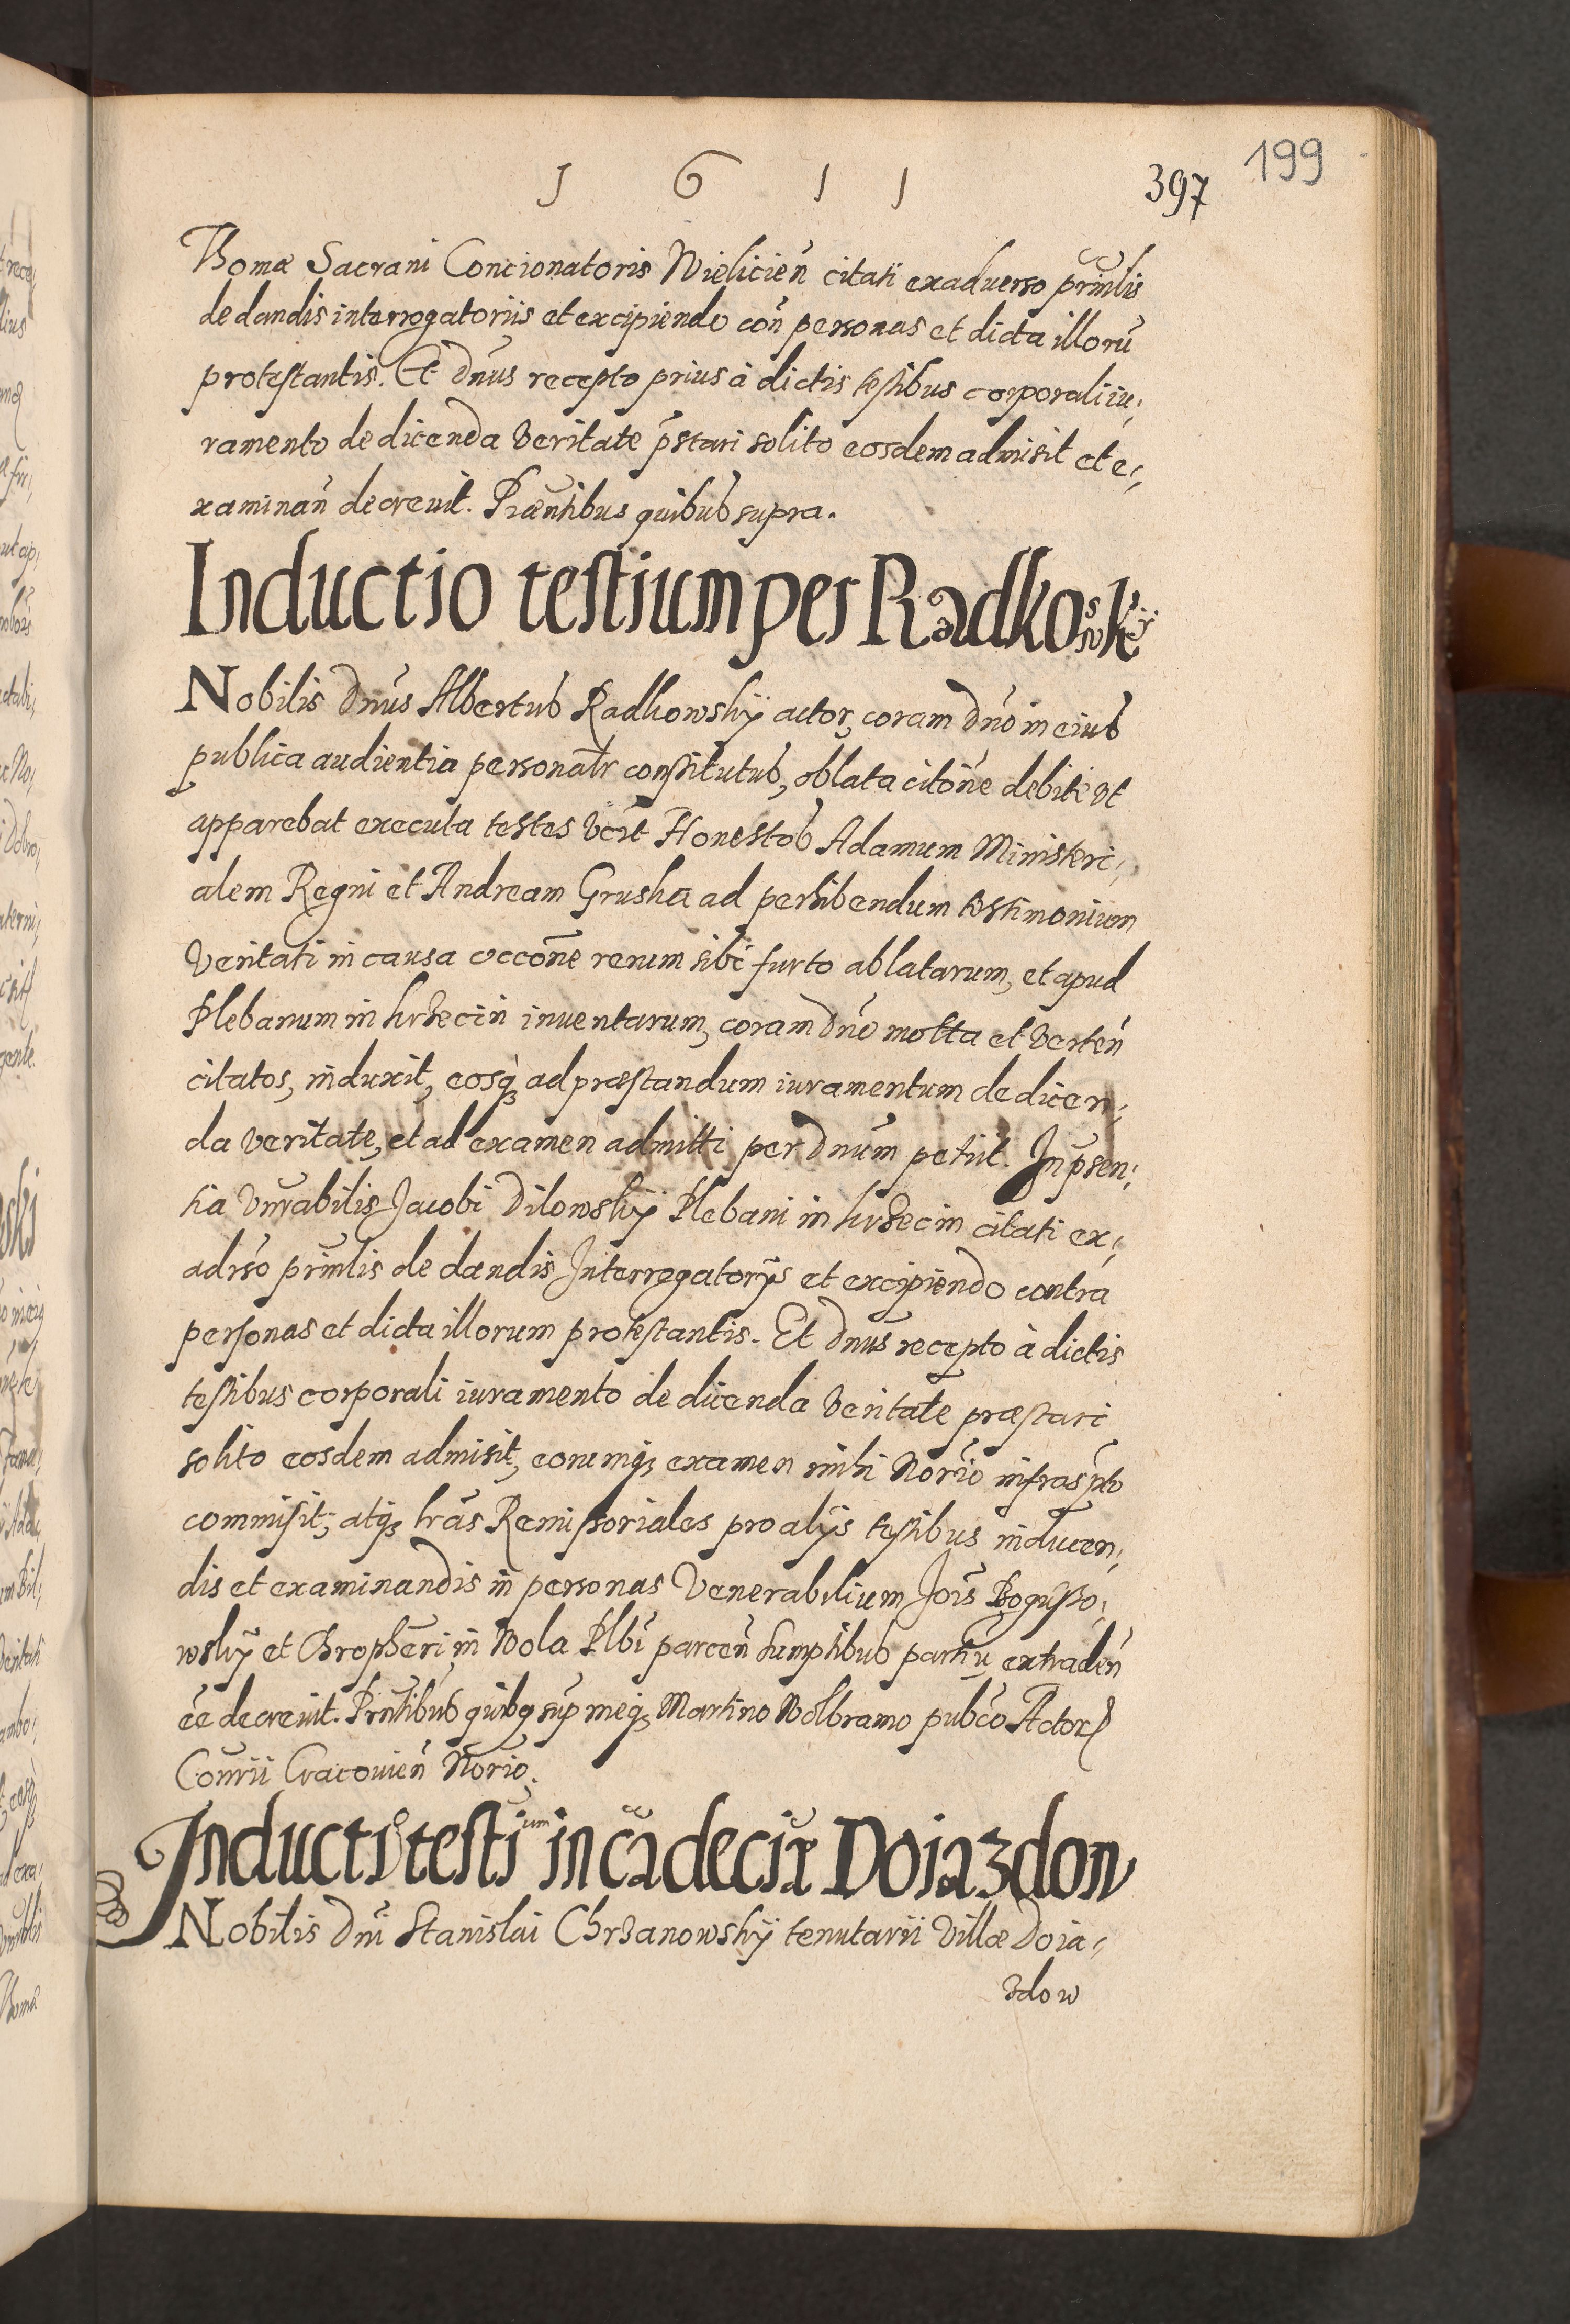 1 6 1 1
397
199
Thomæ Sacrani Concionatoris Wielicien̄ citati exaduerso prin̄lis
de dandis interrogatoriis et excipiendo con̄ personas et dicta illorū
protestantis. Et Dn̄us recepto prius à dictis testibus corporali iu,
ramento de dicenda veritate p̄stari solito eosdem admisit et e,
xaminan̄ decrevit. Præn̄tibus quibus supra.
Inductio testium per Radkowsky
Nobilis Dn̄us Albertus Radkowskÿ actor, coram Dn̄o in eius
publica audientia personalr̄ constitutus, oblata citōne debite vt
apparebat executa testes vc̄rt Honestos Adamum Ministeri,
alem Regni et Andream Gruska ad perhibendum testimonium
veritati in causa occ̄one rerum sibi furto ablatarum, et apud
Plebanum in krzecin inventarum, coram Dn̄o motta et verten̄
citatos, induxit, eosq̃ ad præstandum iuramentum de dicen,
da veritate, et ad examen admitti per Dn̄um petiit. In p̄sen,
tia Vn̄rabilis Jacobi Dilowskÿ Plebani in krzecin citati ex,
adr̄so prin̄lis de dandis Interrogatorÿs et excipiendo contra
personas et dicta illorum protestantis. Et Dn̄us recepto à dictis
testibus corporali iuramento de dicenda veritate præstari
solito eosdem admisit, eorumq̃ examen mihi Nor̄io infrasp̄to
commisit, atq̃ lr̄as Remissoriales pro alÿs testibus inducen,
dis et examinandis in personas Venerabilium Jōis Bogusso,
wskÿ et Chrophēri in Wola Plb̄i parcen̄ sumptibus partiū extraden̄
ēe decrevit. Prn̄tibus quibq sup̄ meq̃ Martino Wolbramo pub̄co Actor
Con̄rii Cracovien̄ Nor̄io.
Inductio testium in cā decir Doiazdon
Nobilis Dn̄i Stanislai Chrzanowskÿ tenutarii villæ Doia,
zdow